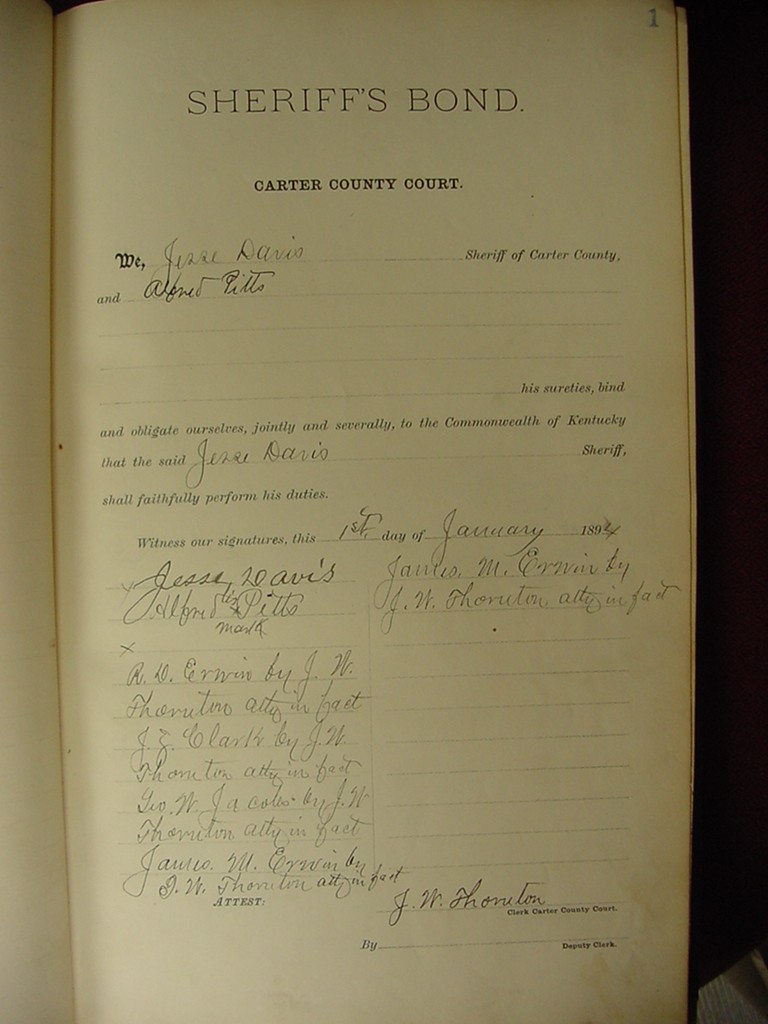 1
SHERIFF'S BOND.
CARTER COUNTY COURT.
We, Jesse Davis Sheriff of Carter County,
and Alfred Pitts
his sureties, bind
and obligate ourselves, jointly and severally, to the Commonwealth of Kentucky
that the said Jesse Davis Sheriff,
shall faithfully perform his duties.
Witness our signatures, this 1st day of January 189
Jesse Davis
x Alfred his x Pitts
mark
x
R. D. Erwin by J. W.
Thornton atty in fact
J. Z. Clark by J. W.
Thornton atty in fact
Geo. W. Jacobs by J. W
Thornton atty in fact
James. M. Erwin by
J. W. Thornton atty in fact
James. M. Erwin by
J. W. Thornton, atty in fact
ATTEST: J. W. Thornton
Clerk Carter County Court.
By Deputy Clerk.